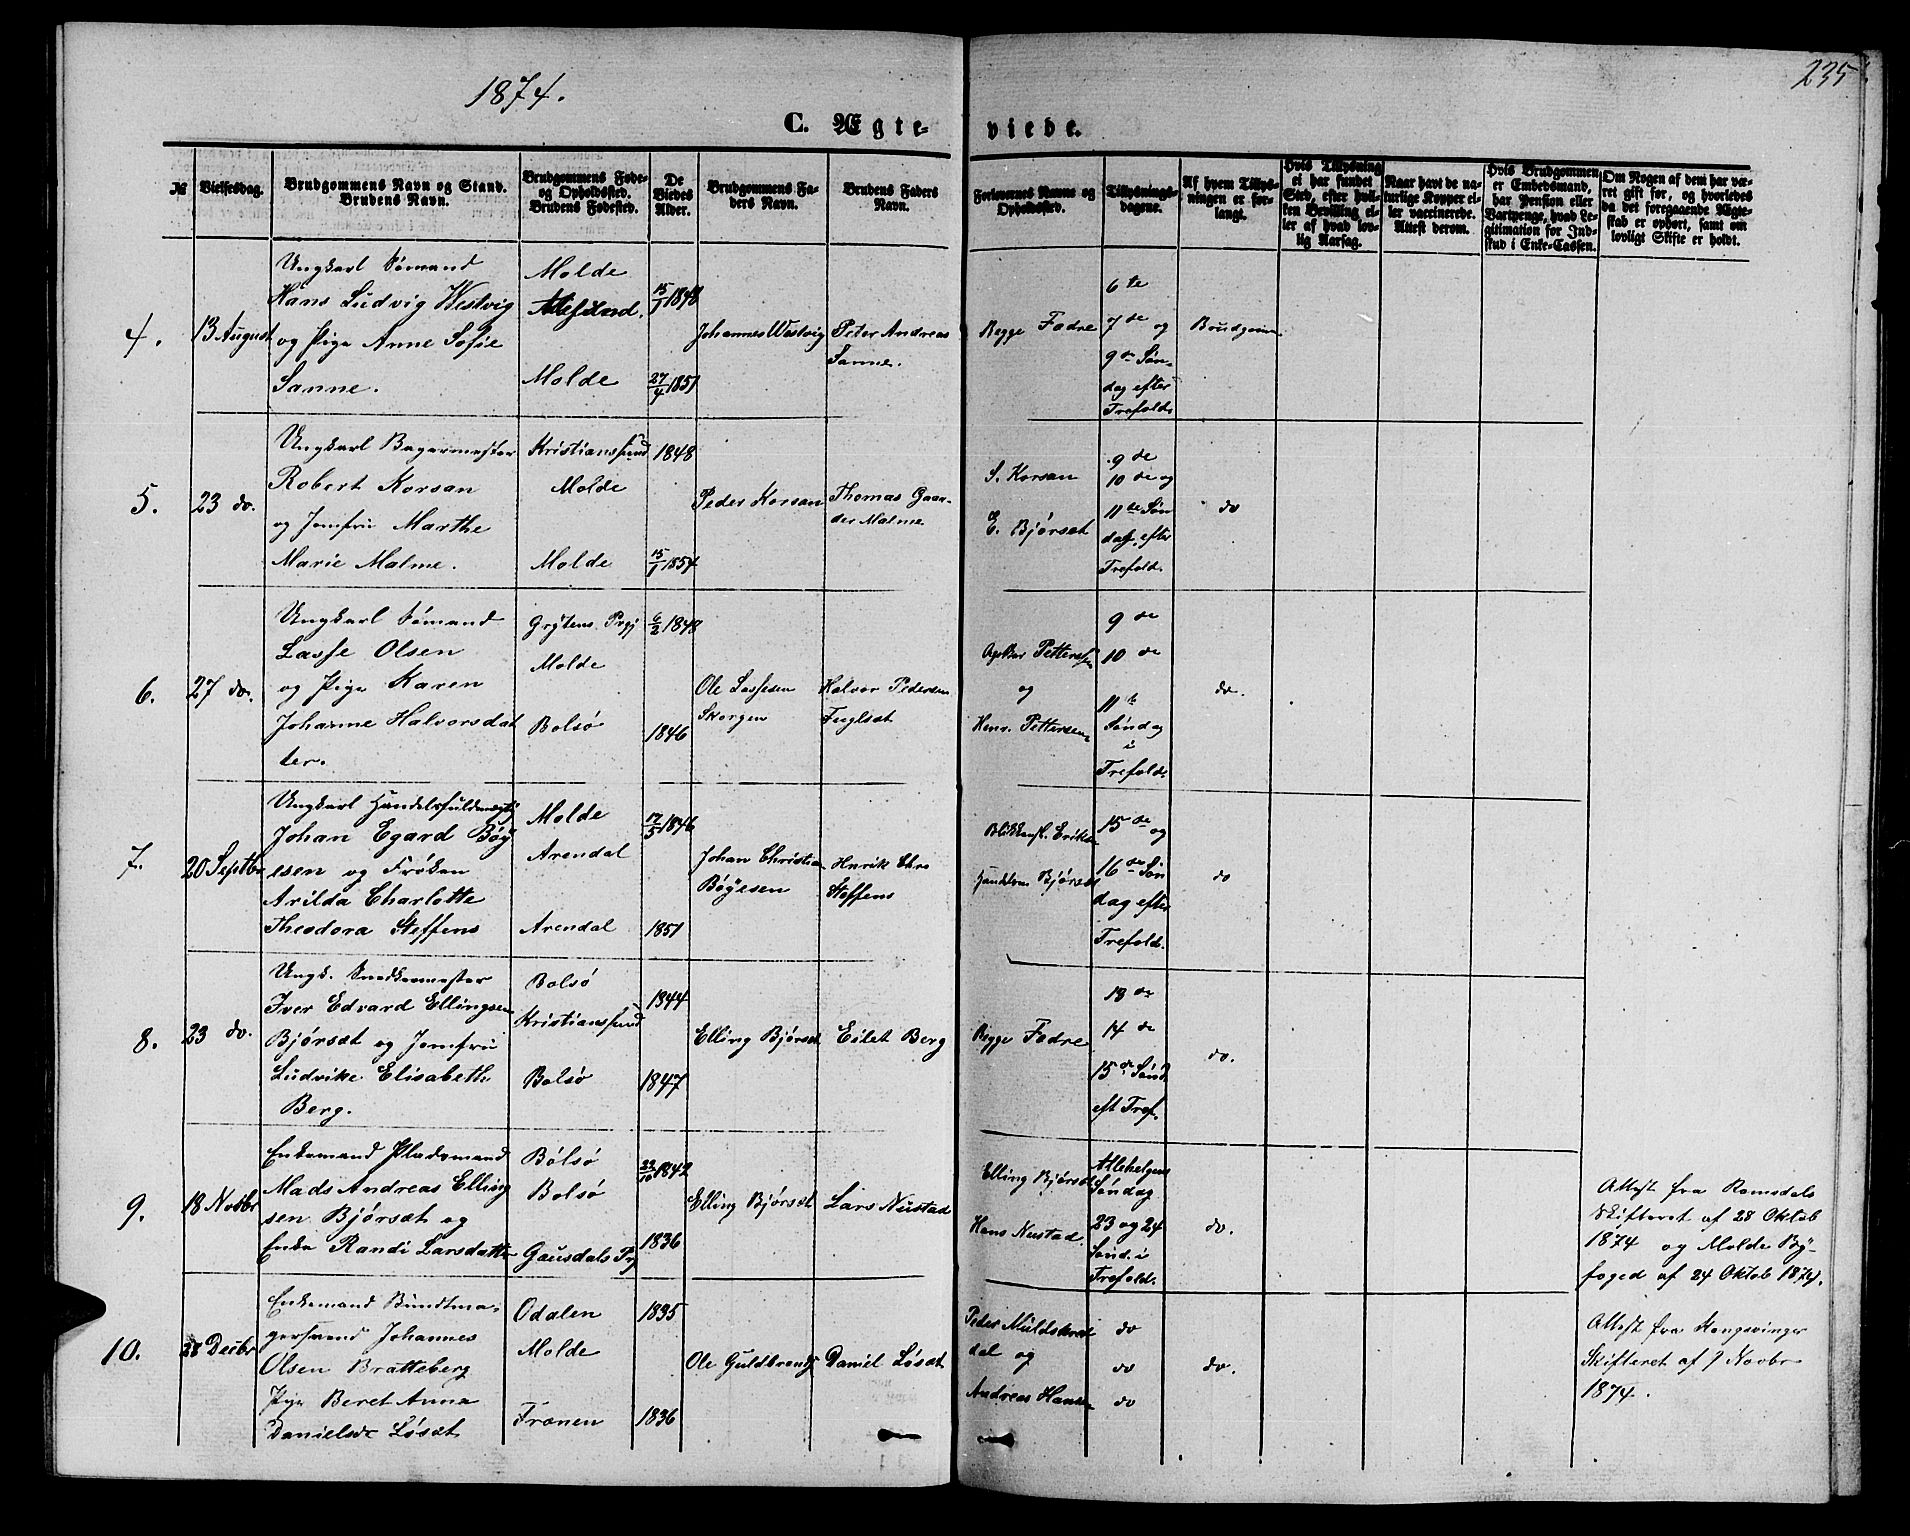 1874.
235
C. Ægte-
viede.
№
Vielsesdag.
Brudgommens Navn og Stand.
Brudens Navn.
Brudgommens Føde-
og Opholdssted.
Brudens Fødested.
De
Viedes
Alder.
Brudgommens Fa-
ders Navn.
Brudens Faders
Navn.
Forlovernes Navne og
Opholdssted.
Tillysnings-
dagene.
Af hvem Tillys-
ningen er for-
langt.
Hvis Tillysning
ei har fundet
Sted, efter hvil-
ken Bevilling el-
ler af hvad lov-
lig Aarsag.
Naar havt de na-
turlige Kopper el-
ler vaccinerede.
Attest derom.
Hvis Brudgommen
er Embedsmand,
har Pension eller
Vartpenge, hvad Le-
gitimation for Ind-
skud i Enke-Cassen.
Om Nogen af dem har væ-
ret gift før, og hvorledes
da det foregaaende Ægte-
skab er ophørt, samt om
lovligt Skifte er holdt.
4.
13 August
Ungkarl Sømand
Hans Ludvig Westvig
og Pige Anne Sofie
Sanne.
Molde
Aalesund.
Molde
15/1 1848
27/4 1851
Johannes Westvig
Peter Andreas
Sanne.
Begge Fædre
6te
7de og
9de Søn-
dag efter
Trefold.
Brudgom
5.
23 do.
Ungkarl Bagermester
Robert Korsan
og Jomfru Marthe
Marie Malme.
Kristianssund
Molde
Molde
1848
15/1 1854
Peder Korsan
Thomas Gaar-
der Malme
S. Korsan
E. Bjørset
9de
10de og
11te Søn
dag efter
Trefold.
do
6.
27 do.
Ungkarl Sømand
Lasse Olsen
og Pige Karen
Johanne Halvorsdat
ter.
Grytens Prgj
Molde
Bolsø
6/2 1848
1846
Ole Lassesen
Skorgen
Halvor Pedersen
Fuglset
Pettersen
og
Henr. Pettersen
9de
10de
11te
Søndag
i
Trefold.
do.
7.
20 Septbr
Ungkarl Handelsfuldmægtig
Johan Egard Bøy
esen og Frøken
Arilda Charlotte
Theodora Steffens
Molde
Arendal
Arendal
17/5 1846
1851
Johan Christian
Bøyesen
Henrik Chr.
Steffens
Blikkensl. Eriksen
Handelsm. Bjørset
15de og
16de Søn
dag efter
Trefold.
do
8.
23 do.
Ungk. Snedkermester
Iver Edvard Ellingsen
Bjørset og Jomfru
Ludvike Elisabeth
Berg.
Bolsø
Kristianssund
Bolsø
1844
1847
Elling Bjørset
Eilet Berg
Begge Fædre
13de
14de
15de Sønd.
eft Tref.
do.
9.
18 Novbr
Enkemand Pladsmand
Mads Andreas Elling
sen Bjørset og
Enke Randi Larsdatter
Bolsø
Bolsø
Gausdals Pg
22/10 1842
1836
Elling Bjørset
Lars Nustad
Elling Bjørset
Hans Nustad.
Allehelgens
Søndag
23 og 24
Sønd. i
Trefold.
do.
Attest fra Romsdals
Skifteret af 28 Oktob
1874 og Molde By-
foged af 24 Oktob 1874.
10.
28 Decbr
Enkemand Buntma-
gersvend Johannes
Olsen Bratteberg
Pige Beret Anna
Danielsdr Løset
Odalen
Molde
Frænen
1835
1836
Ole Guldbrands
Daniel Løset
Peder Muldskred
dal og
Andreas Hansen
do
do
do
do.
Attest fra Kongsvinger
Skifteret af 9 Novbr
1874.